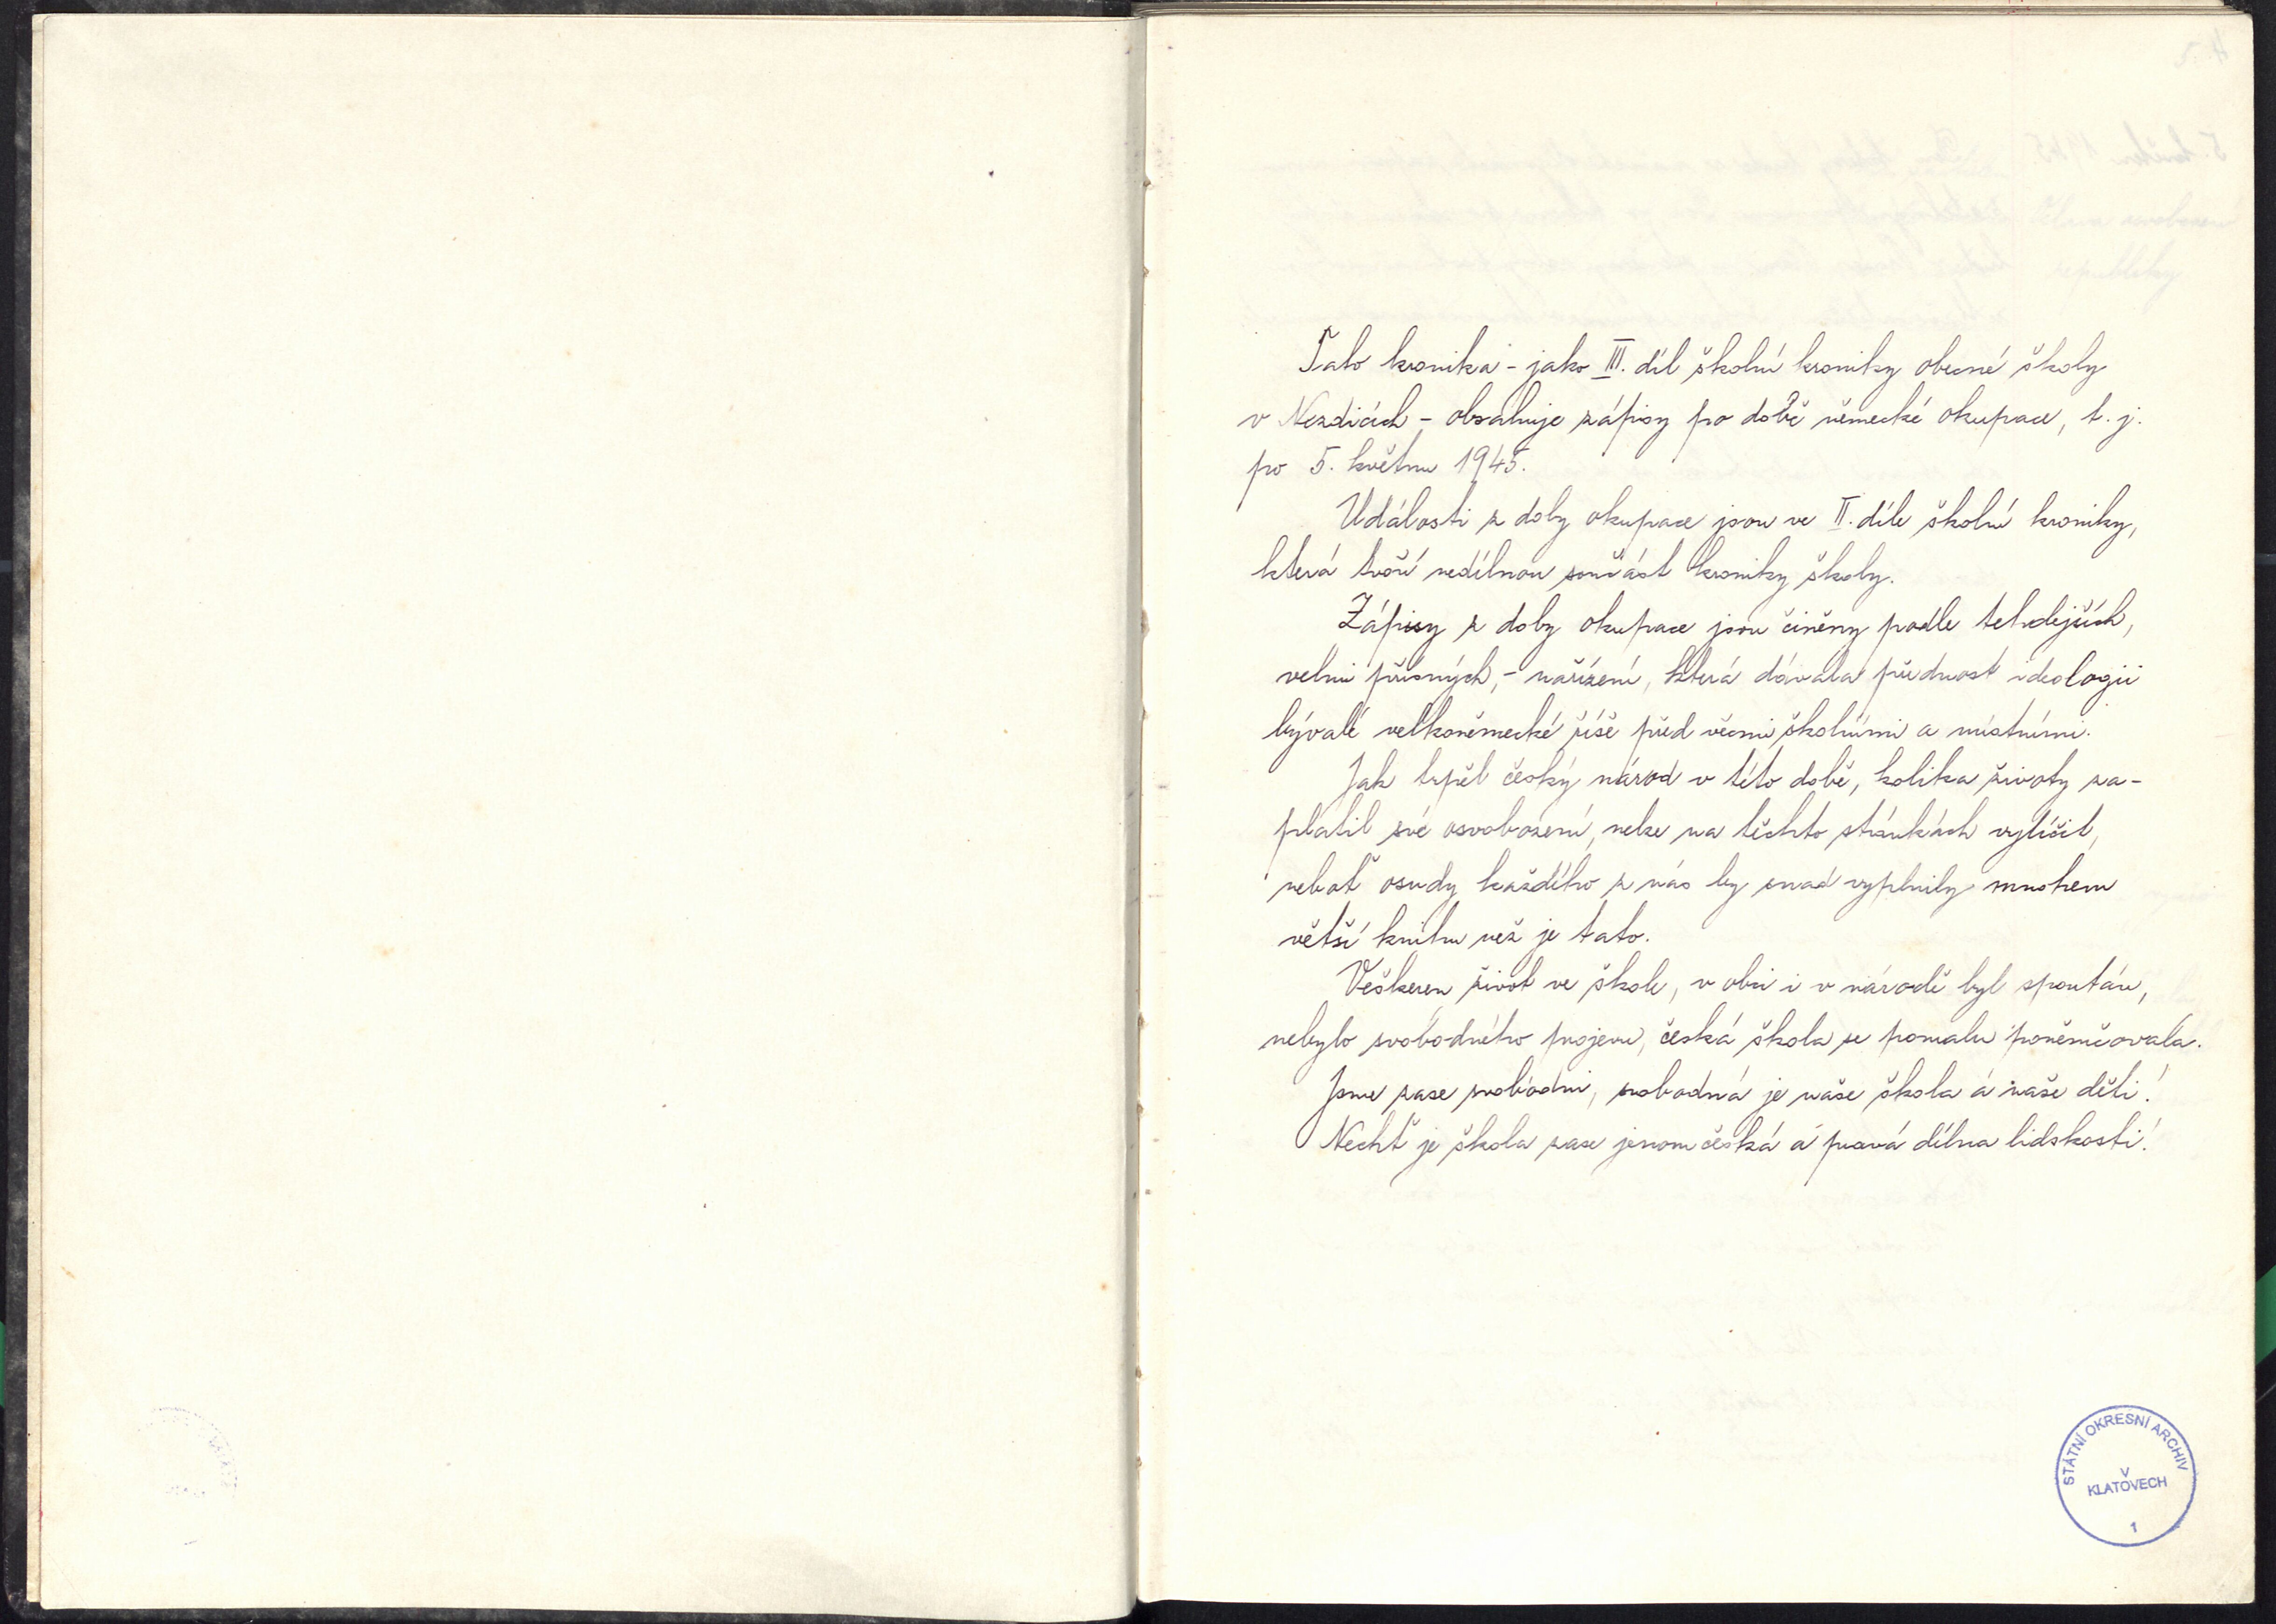 Tato kronika - jako III. díl školní kroniky obecné školy
v Nezdicích - obsahuje zápisy po době německé okupace, t. j.
po 5. květnu 1945.
Události z doby okupace jsou ve II. díle školní kroniky,
která tvoří nedílnou součást kroniky školy.
Zápisy z doby okupace jsou činěny podle tehdejších,
velmi přísných, - nařízení, která dávala přednost ideologii
bývalé velkoněmecké říše před věcmi školními a místními.
Jak trpěl český národ v této době, kolika životy za-
platil své osvobození, nelze na těchto stránkách vylíčit,
neboť osudy každého z nás by snad vyplnily mnohem
větší knihu než je tato.
Veškeren život ve škole, v obci i v národě byl spoután,
nebylo svobodného projevu, česká škola se pomalu poněmčovala.
Jsme zase svobodni, svobodná je naše škola a naše děti!
Nechť je škola zase jenom česká a pravá dílna lidskosti!
STÁTNÍ OKRESNÍ ARCHIV
V
KLATOVECH
1